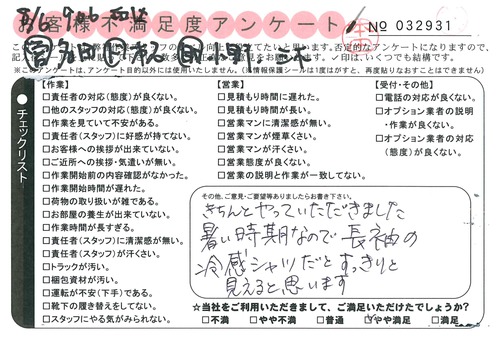 お客様不満足度アンケート
No 032931
※このアンケートは、アンケート目的以外には使用いたしません。(※情報保護シールは1度はがすと、再度貼りなおすことはできません)
チェックリスト
【作業】
□責任者の対応(態度)が良くない。
□他のスタッフの対応(態度)が良くない。
□作業を見ていて不安がある。
□責任者(スタッフ)に好感が持てない。
□お客様への挨拶が出来ていない。
□ご近所への挨拶・気遣いが無い。
□作業開始前の内容確認がなかった。
□作業開始時間が遅れた。
□荷物の取り扱いが雑である。
□お部屋の養生が出来ていない。
□作業時間が長すぎる。
□責任者(スタッフ)に清潔感が無い。
□責任者(スタッフ)が汗くさい。
□トラックが汚い。
□梱包資材が汚い。
□運転が不安(下手)である。
□靴下の履き替えをしてない。
□スタッフにやる気がみられない。
【営業】
□見積もり時間に遅れた。
□見積もり時間が長い。
□営業マンに清潔感が無い。
□営業マンが煙草くさい。
□営業マンが汗くさい。
□営業態度が良くない。
□営業の説明と作業が一致してない。
【受付・その他】
□電話の対応が良くない。
□オプション業者の説明
・作業が良くない。
□オプション業者の対応
(態度)が良くない。
その他、ご意見・ご要望等ありましたらお書き下さい。
きちんとやっていただきました
暑い時期なので長袖の
冷感シャツだとすっきりと
見えると思います
★当社をご利用いただきまして、ご満足いただけたでしょうか?
□不満 □やや不満 □普通 ☑やや満足 □満足